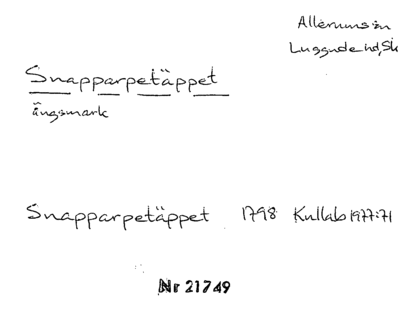 Allerums sn
Luggude hd, Sk
Snapparpetäppet
ängsmark
Snapparpetäppet 1798 Kullab 1977:71
Nr 21749